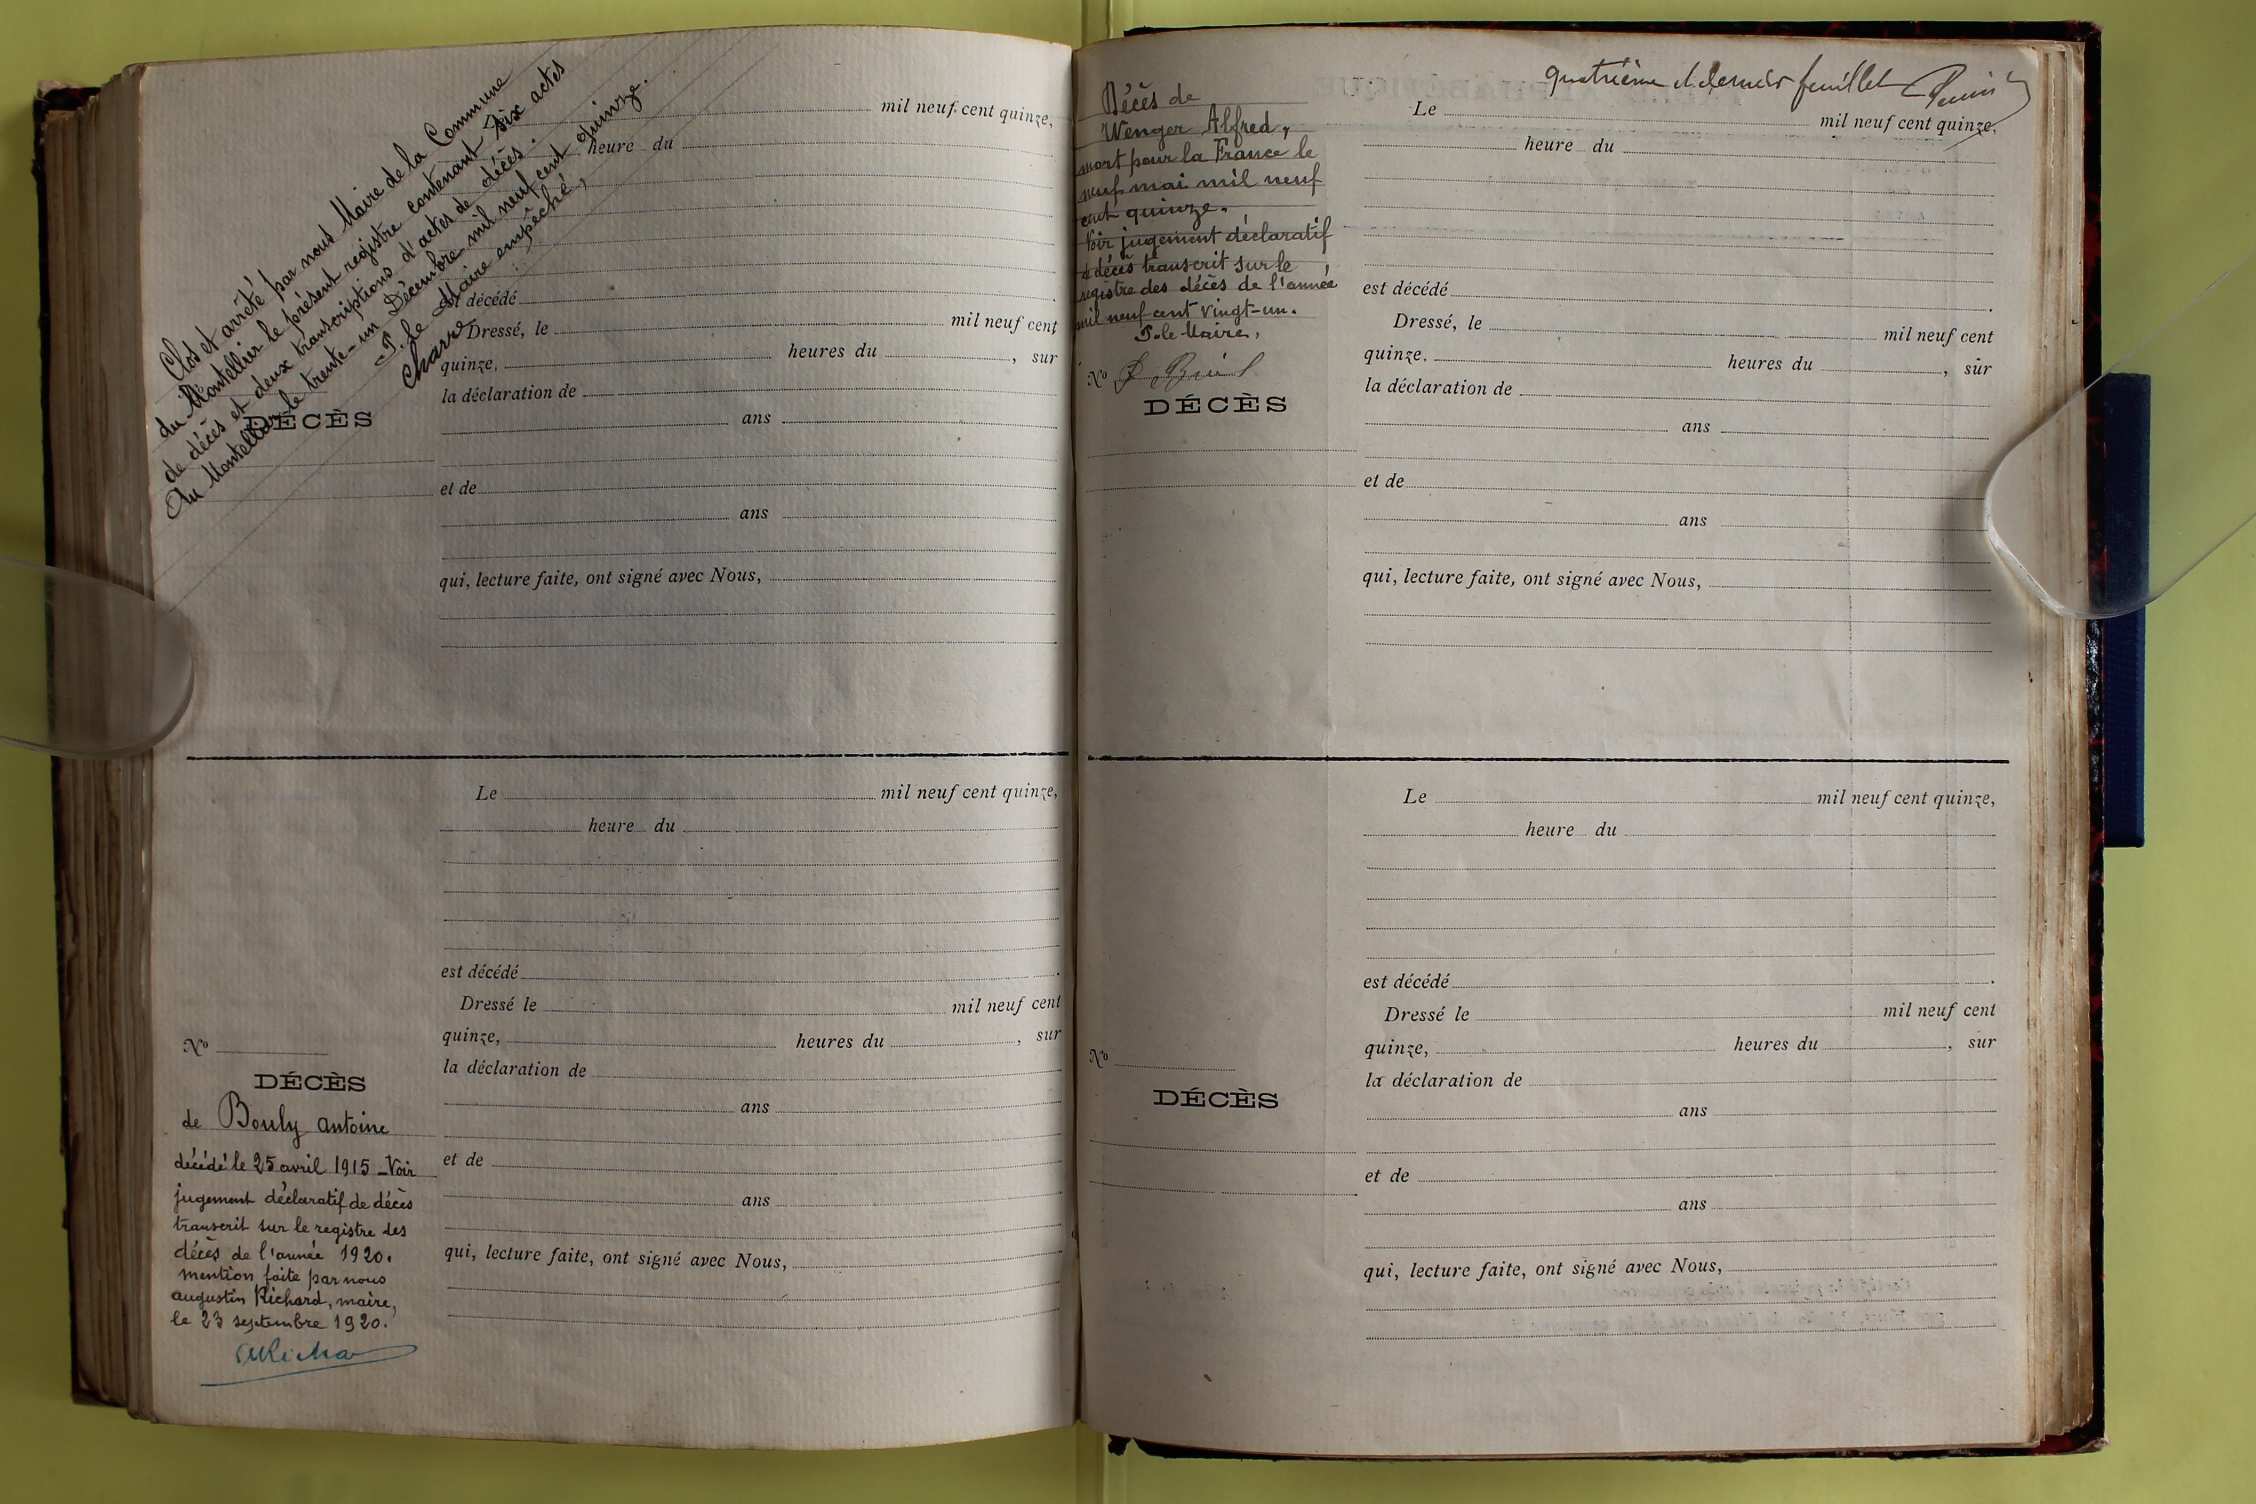 Clos et arrêté par nous Maire de la Commune
du Montellier le présent registre contenant six actes
de décès et deux transcriptions d'actes de décès.
Au Montellier le trente-un Décembre mil neuf cent quinze.
P. le Maire empêché,
Charre
mil neuf cent quinze,
heure du
décédé
Dressé, le mil neuf cent
quinze, heures du , sur
la déclaration de
DÉCÈS
ans
et de
ans
qui, lecture faite, ont signé avec Nous,
Le mil neuf cent quinze,
heure du
est décédé
Dressé le mil neuf cent
quinze, heures du , sur
la déclaration de
ans
et de
ans
qui, lecture faite, ont signé avec Nous,
No
DÉCÈS
de Bouly antoine
décédé le 25 avril 1915 - Voir
jugement déclaratif de décès
transcrit sur le registre des
décès de l'année 1920.
mention faite par nous
augustin Richard, maire,
le 23 septembre 1920.
quatrième et dernier feuillet
Décès de
Wenger Alfred,
mort pour la France le
neuf mai mil neuf
cent quinze.
Voir jugement déclaratif
de décès transcrit sur le
registre des décès de l'année
mil neuf cent vingt-un.
P. le Maire,
No
DÉCÈS
Le mil neuf cent quinze,
heure du
est décédé
Dressé, le mil neuf cent
quinze, heures du , sur
la déclaration de
ans
et de
ans
qui, lecture faite, ont signé avec Nous,
Le mil neuf cent quinze,
heure du
est décédé
Dressé le mil neuf cent
quinze, heures du , sur
la déclaration de
No
DÉCÈS
ans
et de
ans
qui, lecture faite, ont signé avec Nous,